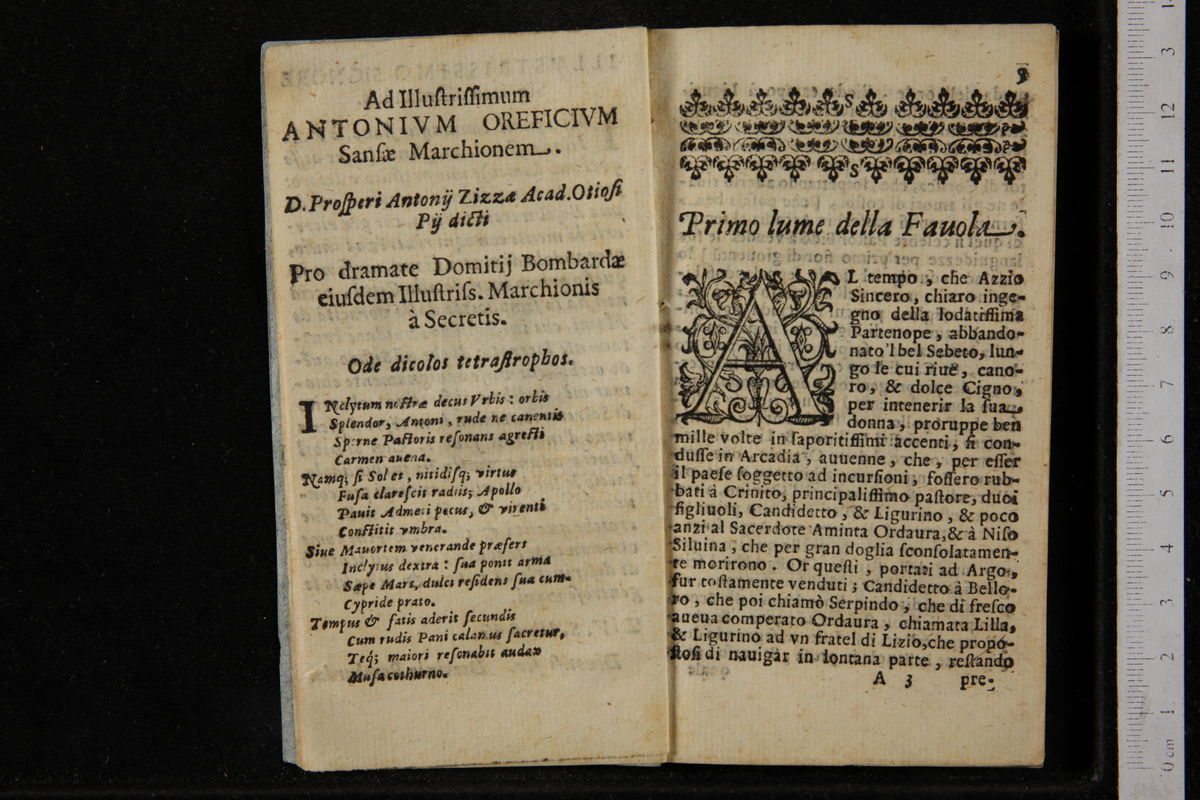 Ad Illuſtriſſimum
ANTONIVM OREFICIVM
Sanſæ Marchionem.
D. Proſperi Antonij Zizzæ Acad. Otioſi
Pij dicti
Pro dramate Domitij Bombardæ
eiuſdem Illuſtriſs. Marchionis
à Secretis.
Ode dicolos tetraſtrophos.
INclytum noſtræ decus Vrbis : orbis
Splendor, Antoni, rude ne canentis
Sperne Paſtoris reſonans agreſti
Carmen auena.
Namq; ſi Sol es, nitidiſq; virtus
Fuſa clareſcit radijs; Apollo
Pauit Admeti pecus, & virenti
Conſtitit vmbra.
Siue Mauortem venerande præfers
Inclytus dextra : ſua ponit arma
Sæpe Mars, dulci reſidens ſua cum
Cypride prato.
Tempus & fatis aderit ſecundis
Cum rudis Pani calamus ſacretur,
Teq; maiori reſonabit audax
Muſa cothurno.
S
S
Primo lume della Fauola.
AL tempo, che Azzio
Sincero, chiaro inge-
gno della lodatiſſima
Partenope, abbando-
nato'l bel Sebeto, lun-
go le cui riue, cano-
ro, & dolce Cigno,
per intenerir la ſua
donna, proruppe ben
mille volte in ſaporitiſſimi accenti, ſi con-
duſſe in Arcadia, auuenne, che, per eſſer
il paeſe ſoggetto ad incurſioni, foſſero rub-
bati à Crinito, principaliſſimo paſtore, duoi
figliuoli, Candidetto, & Ligurino, & poco
anzi al Sacerdote Aminta Ordaura, & à Niſo
Siluina, che per gran doglia ſconſolatamen-
te morirono. Or queſti, portati ad Argo,
fur toſtamente venduti; Candidetto à Bello-
ro, che poi chiamò Serpindo, che di freſco
aueua comperato Ordaura, chiamata Lilla,
& Ligurino ad vn fratel di Lizio, che propo-
ſtoſi di nauigar in lontana parte, reſtando
A 3 pre-